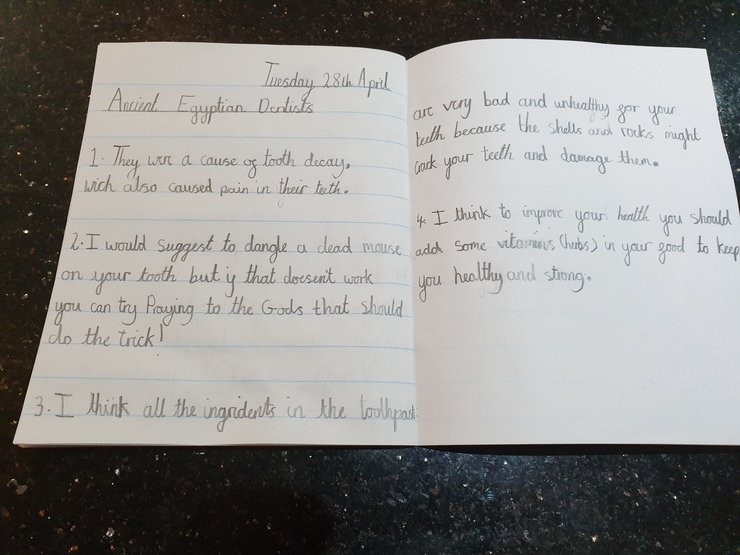 Tuesday 28th April
Ancient Egyptian Dentists
1. They were a cause of tooth decay,
wich also caused pain in their teeth.
2. I would suggest to dangle a dead mouse
on your tooth but if that doesen't work
you can try Praying to the Gods that should
do the trick!
3. I think all the ingridents in the toothpast
are very bad and unhealthy for your
teeth because the shells and rocks might
crack your teeth and damage them.
4. I think to improve your health you should
add some vitamins (herbs) in your food to keep
you healthy and strong.